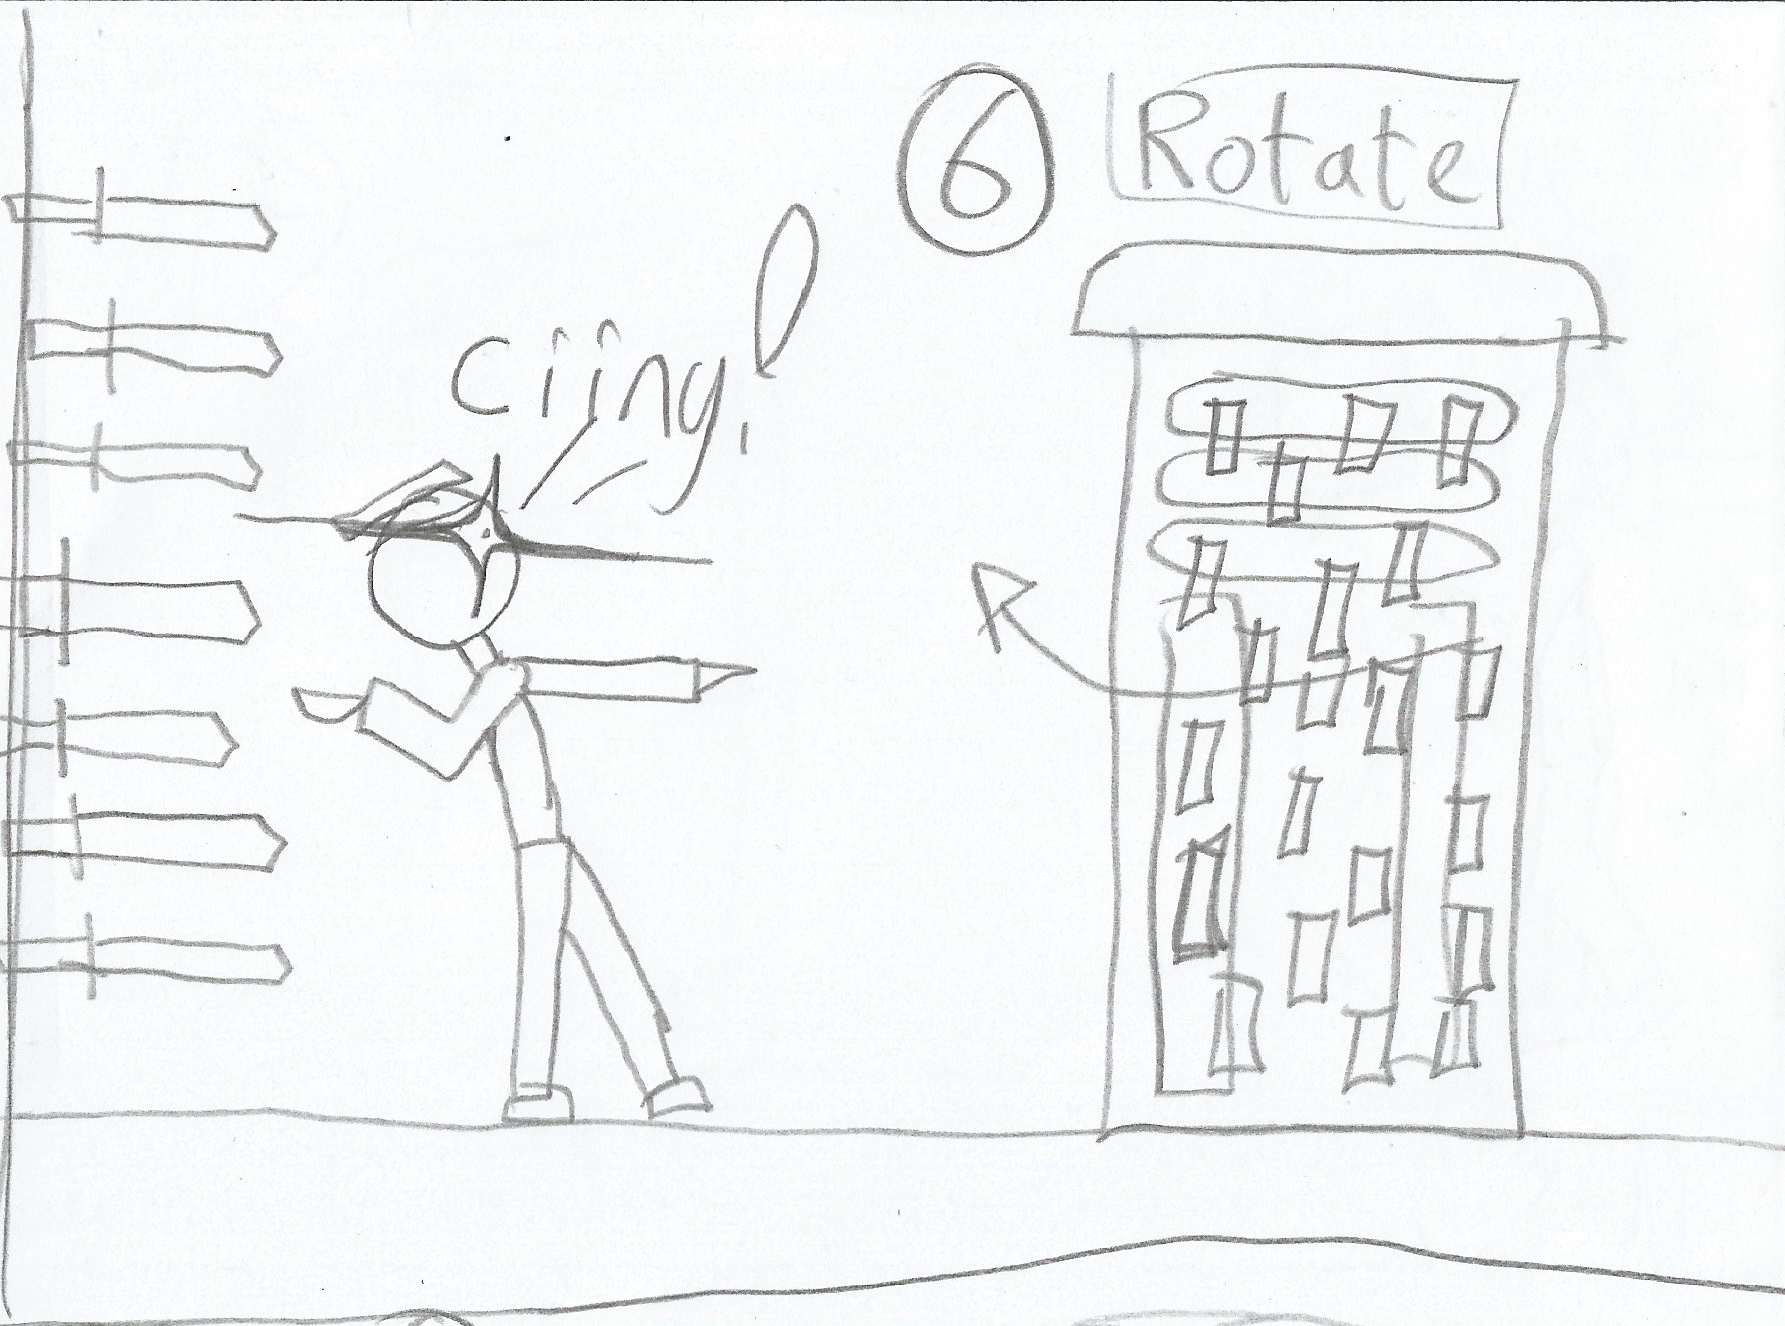 6 Rotate
ciing!